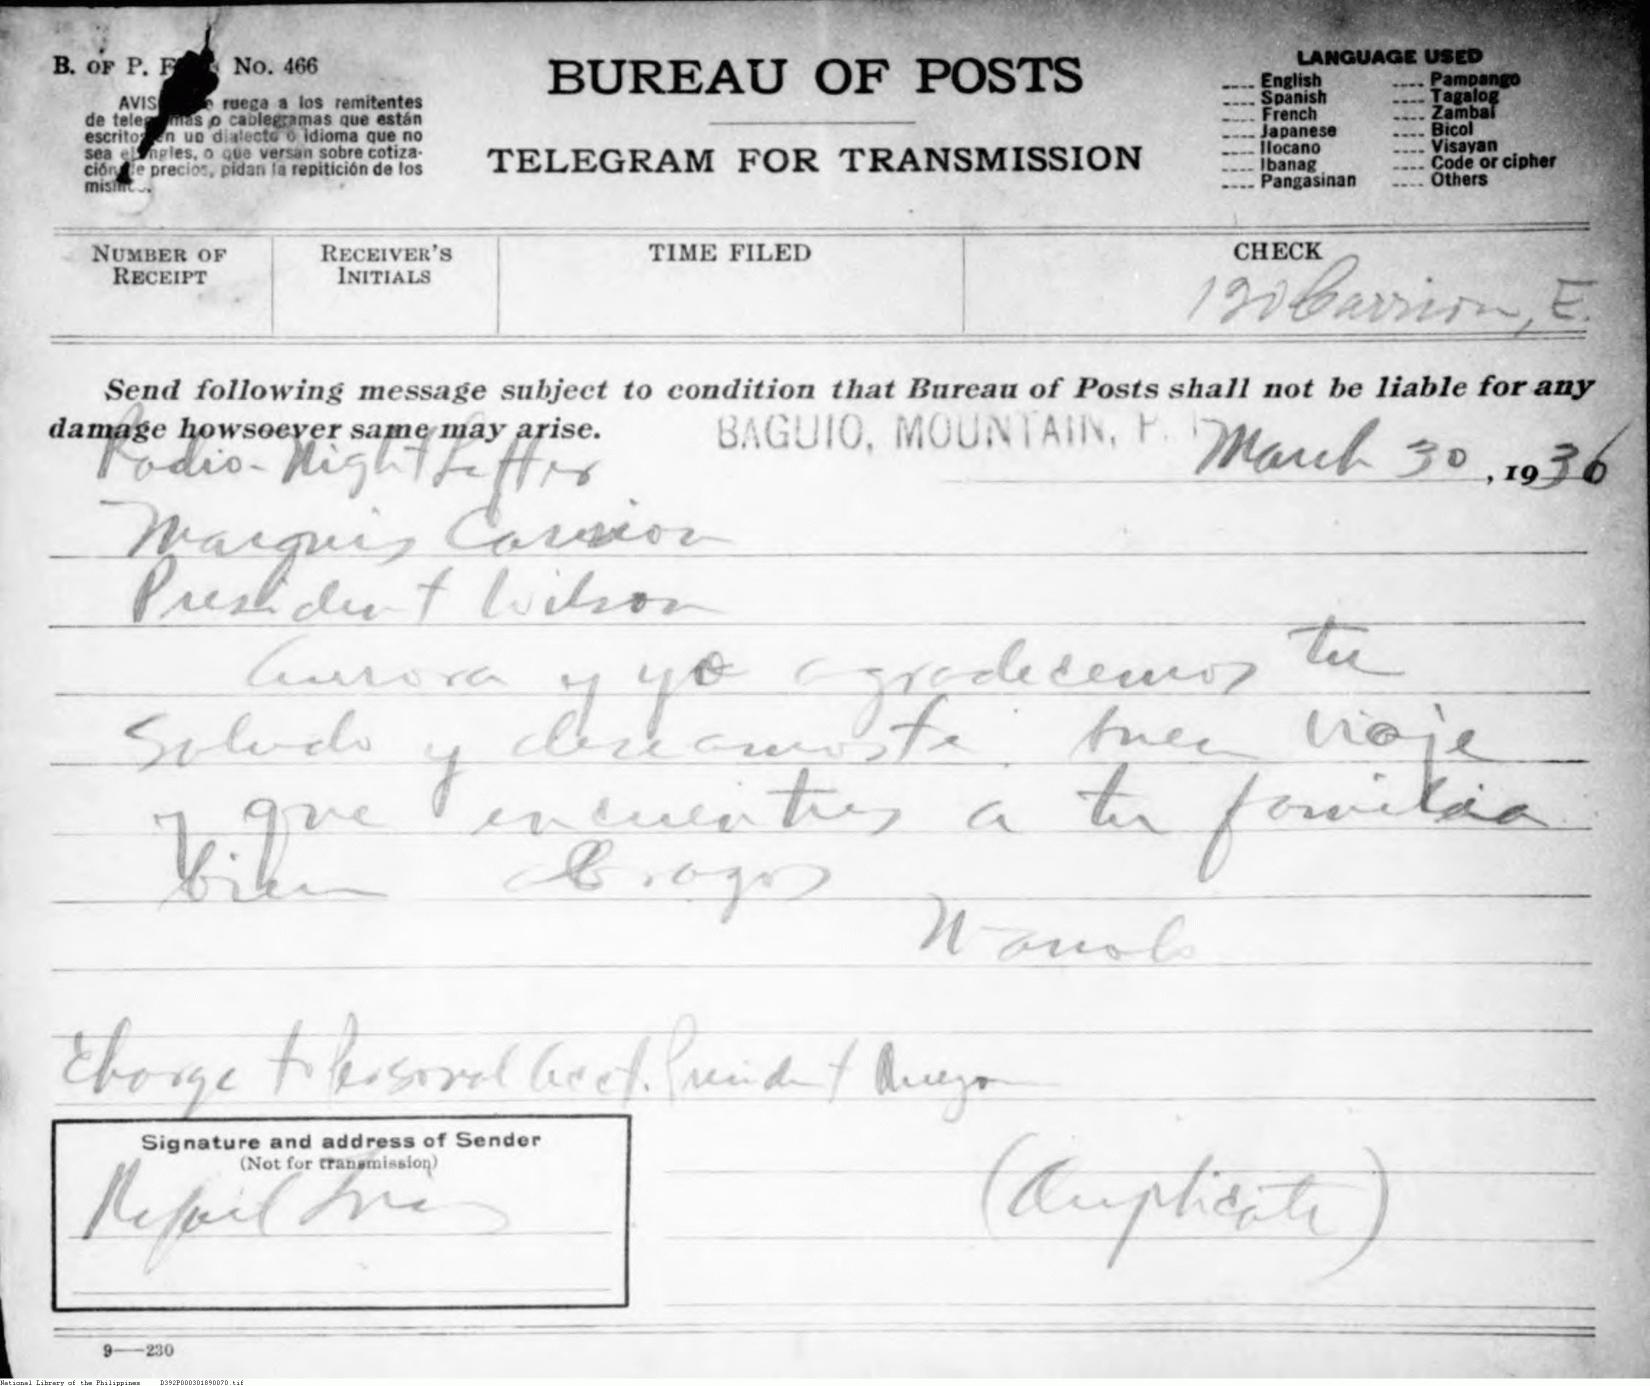 B. OF P. No. 466
ruega a los remitentes
de telegramas o cablegramas que están
escritos en un dialecto o idioma que no
sea el ingles, o que versan sobre cotiza-
ción de precios, pidan la repitición de los
mismos.
BUREAU OF POSTS
TELEGRAM FOR TRANSMISSION
LANGUAGE USED
.... English .... Pampango
.... Spanish .... Tagalog
.... French .... Zambal
.... Japanese .... Bicol
.... Ilocano .... Visayan
.... Ibanag .... Code or cipher
.... Pangasinan .... Others
NUMBER OF RECEIPT
RECEIVER'S INITIALS
TIME FILED
CHECK
Carrion, E.
Send following message subject to condition that Bureau of Posts shall not be liable for any
damage howsoever same may arise.
BAGUIO, MOUNTAIN, P.
March 30, 1936
Radio-Night Letter
Marquis Carrion
President Wilson
Aurora y yo agradecemos tu
saludo y deseamoste buen viaje
y que encuentres a tu familia
bien Abrazos
Manolo
Charge to Personal Acct. President Quezon
Signature and address of Sender
(Not for transmission)
Rafael
(Duplicate)
9—230
National Library of the Philippines D392P000301890070.tif